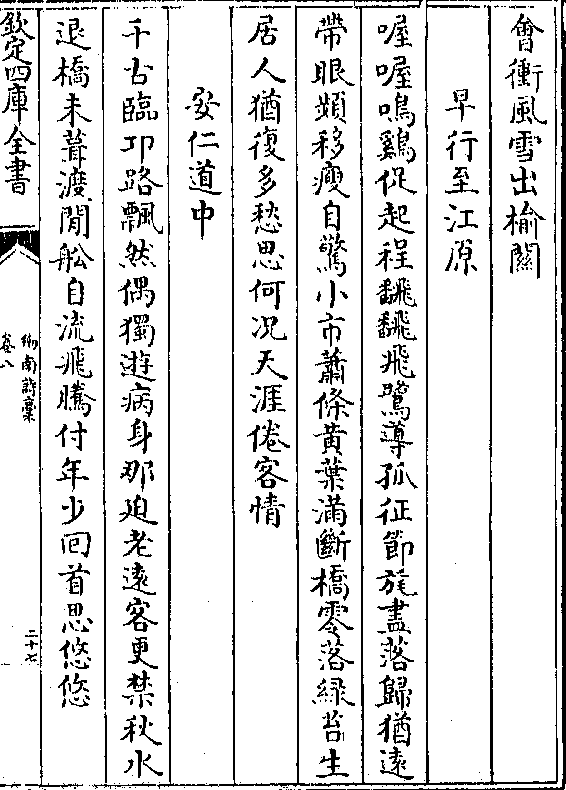 會衝風雪出榆關
早行至江原
喔喔鳴鷄促起程翻翻飛鷺導孤征節旄盡落歸猶遠
帶眼頻移瘦自驚小市蕭條黄葉滿斷橋零落緑苔生
居人猶復多愁思何况天涯倦客情
安仁道中
千古臨卭路飄然偶獨遊病身那廹老遠客更禁秋水
退橋未葺渡閒舩自流飛騰付年少回首思悠悠
欽定四庫全書
劔南詩藳
卷八
二十七